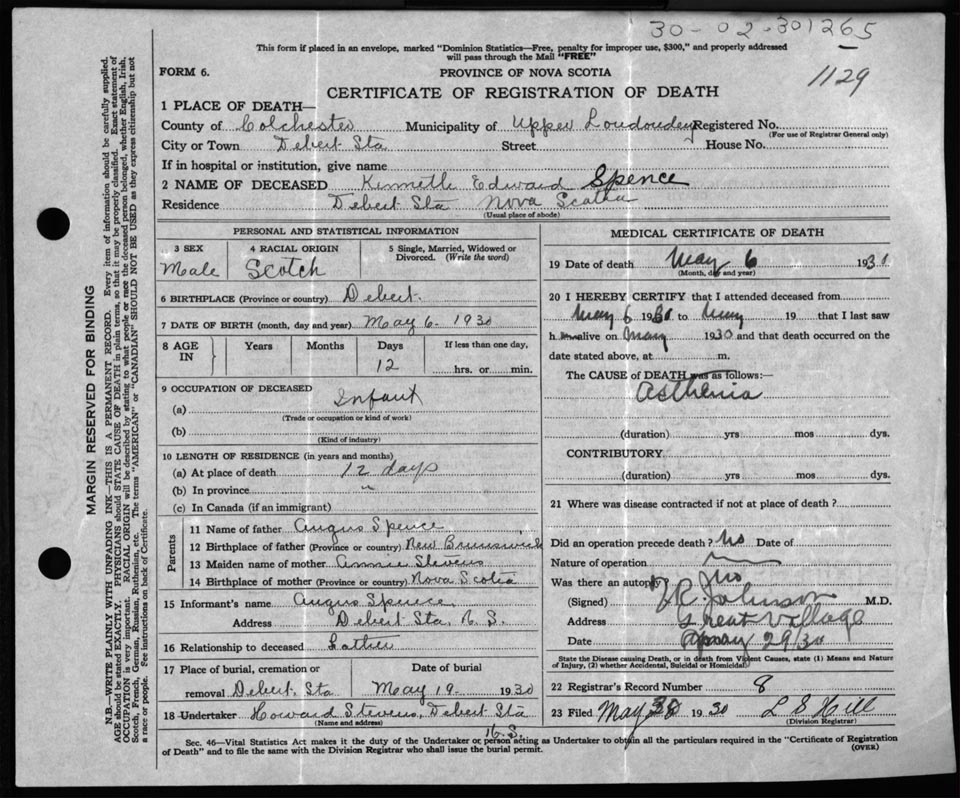 30-02-301265
This form if placed in an envelope, marked "Dominion Statistics—Free, penalty for improper use, $300," and properly addressed
will pass through the Mail "FREE"
1129
FORM 6.
PROVINCE OF NOVA SCOTIA
CERTIFICATE OF REGISTRATION OF DEATH
1 PLACE OF DEATH—
County of Colchester Municipality of Upper Registered No.
(For use of Registrar General only)
City or Town Debert Sta Street House No.
If in hospital or institution, give name
2 NAME OF DECEASED Kenneth Edward Spence
Residence Debert Sta Nova Scotia
(Usual place of abode)
PERSONAL AND STATISTICAL INFORMATION
3 SEX 4 RACIAL ORIGIN 5 Single, Married, Widowed or
Divorced. (Write the word)
Male Scotch
6 BIRTHPLACE (Province or country) Debert.
7 DATE OF BIRTH (month, day and year) May 6. 1930
8 AGE IN Years Months Days If less than one day,
12 hrs. or min.
9 OCCUPATION OF DECEASED
(a) Infant
(Trade or occupation or kind of work)
(b)
(Kind of industry)
10 LENGTH OF RESIDENCE (in years and months)
(a) At place of death 12 days
(b) In province "
(c) In Canada (if an immigrant)
Parents
11 Name of father Angus Spence
12 Birthplace of father (Province or country) New Brunswick
13 Maiden name of mother Annie Stevens
14 Birthplace of mother (Province or country) Nova Scotia
15 Informant's name Angus Spence
Address Debert Sta, N. S.
16 Relationship to deceased Father
17 Place of burial, cremation or Date of burial
removal Debert, Sta May 19 1930
18 Undertaker Howard Stevens, Debert Sta
(Name and address)
N.S.
MEDICAL CERTIFICATE OF DEATH
19 Date of death May 6 193
(Month, day and year)
20 I HEREBY CERTIFY that I attended deceased from
May 6 19 to 19 that I last saw
h alive on May 1930 and that death occurred on the
date stated above, at m.
The CAUSE of DEATH was as follows:—
Asthenia
(duration) yrs mos dys.
CONTRIBUTORY
(duration) yrs mos dys.
21 Where was disease contracted if not at place of death?
Did an operation precede death? No Date of
Nature of operation
Was there an autopsy No
(Signed) Johnson M.D.
Address Great Village
Date May 29/30
State the Disease causing Death, or in death from Violent Causes, state (1) Means and Nature
of Injury, (2) whether Accidental, Suicidal or Homicidal.
22 Registrar's Record Number 8
23 Filed May 1930 L S Hill
(Division Registrar)
Sec. 46—Vital Statistics Act makes it the duty of the Undertaker or person acting as Undertaker to obtain all the particulars required in the "Certificate of Registration
of Death" and to file the same with the Division Registrar who shall issue the burial permit.
(OVER)
MARGIN RESERVED FOR BINDING
N.B.—WRITE PLAINLY WITH UNFADING INK—THIS IS A PERMANENT RECORD. Every item of information should be carefully supplied.
AGE should be stated EXACTLY. PHYSICIANS should STATE CAUSE OF DEATH in plain terms, so that it may be properly classified. Exact statement of
OCCUPATION is very important. RACIAL ORIGIN will be described by stating to what people or race the deceased person belonged, whether English, Irish,
Scotch, French, German, Russian, Ruthenian, etc. The terms "AMERICAN" or "CANADIAN" SHOULD NOT BE USED as they express citizenship but not
a race or people. See instructions on back of Certificate.